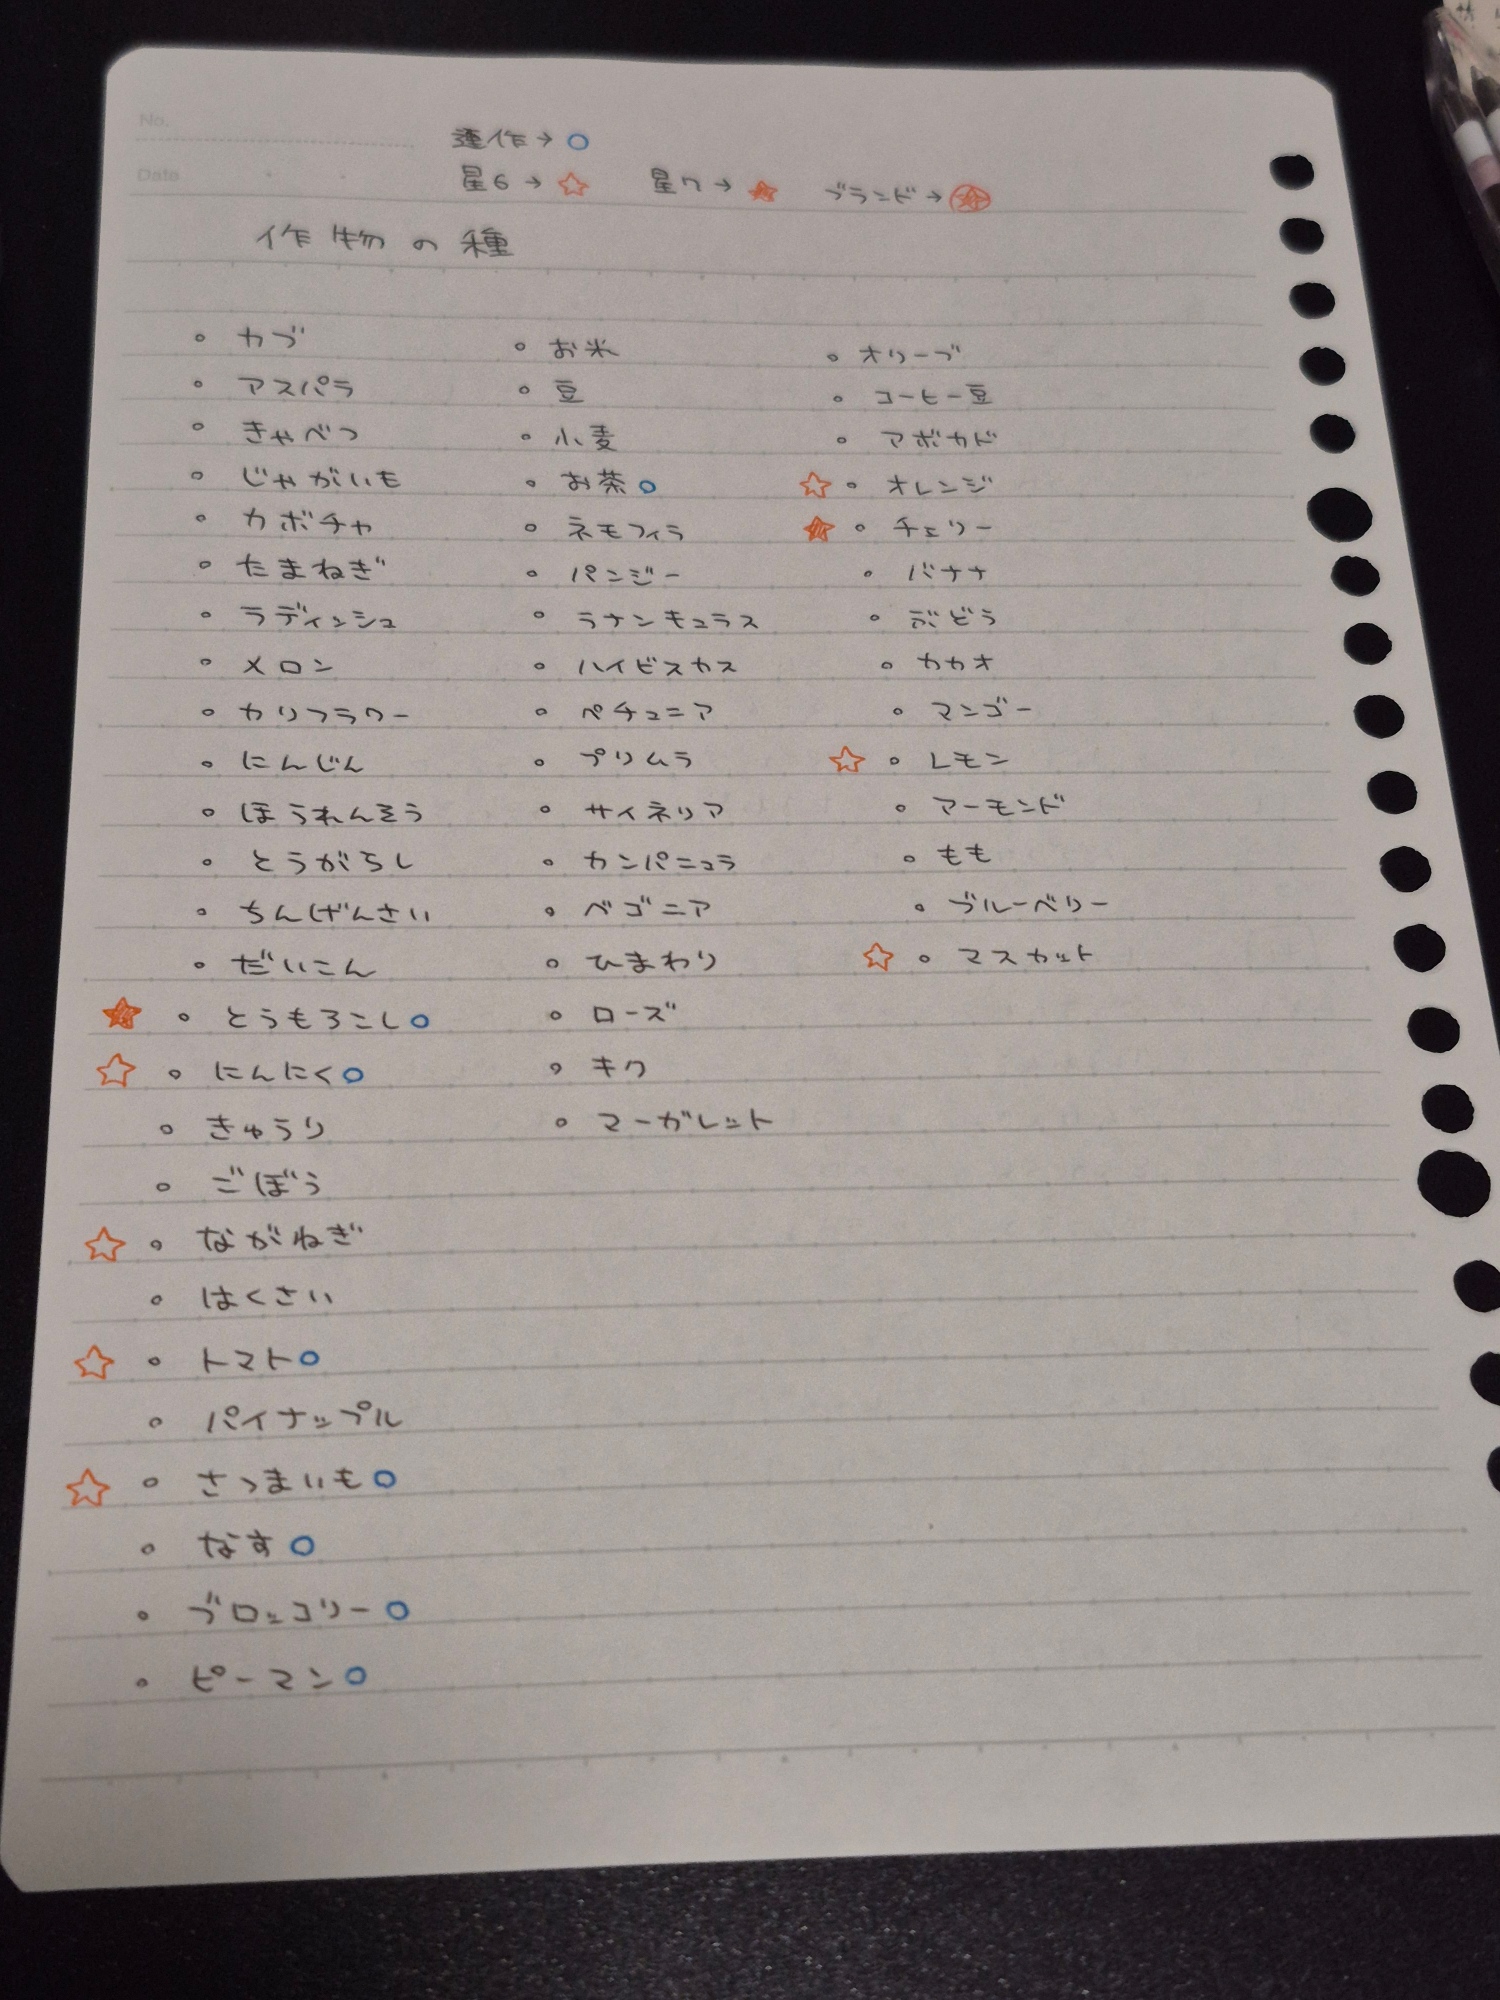 No.
Date
連作→○
星6→☆ 星7→★ ブランド→
作物の種
・カブ
・アスパラ
・きゃべつ
・じゃがいも
・カボチャ
・たまねぎ
・ラディッシュ
・メロン
・カリフラワー
・にんじん
・ほうれんそう
・とうがらし
・ちんげんさい
・だいこん
★・とうもろこし○
☆・にんにく○
・きゅうり
・ごぼう
☆・ながねぎ
・はくさい
☆・トマト○
・パイナップル
☆・さつまいも○
・なす○
・ブロッコリー○
・ピーマン○
・お米
・豆
・小麦
・お茶○
・ネモフィラ
・パンジー
・ラナンキュラス
・ハイビスカス
・ペチュニア
・プリムラ
・サイネリア
・カンパニュラ
・ベゴニア
・ひまわり
・ローズ
・キク
・マーガレット
・オリーブ
・コーヒー豆
・アボカド
☆・オレンジ
★・チェリー
・バナナ
・ぶどう
・カカオ
・マンゴー
☆・レモン
・アーモンド
・もも
・ブルーベリー
☆・マスカット